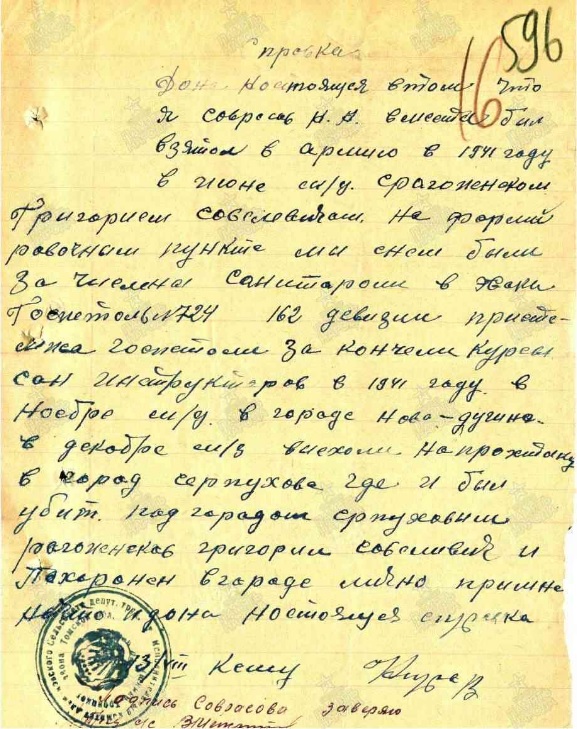 596
16
Справка
Дана настоящея втом что
я Соврасов Н. А. вместе был
взятом в армию в 1941 году
в июне м/ц. срагоженском
Григорием Совелевичам. На форми
ровочным пункте ми снем были
За числена Санитароми в
Госпеталь №724 162 девизии
госпетоли За кончели Курсы
сан инструктеров в 1941 году в
Ноебре м/ц. в городе Нова-дугина.
в декабре м/ц виехоли
в город серпухова где и был
убит. под городом серпуховым
рагоженсков григорий совеливич и
Пахаронен в городе лично при мне
и дона ностоящея спрвка
13 VIII
Подпись Соврасова заверяю